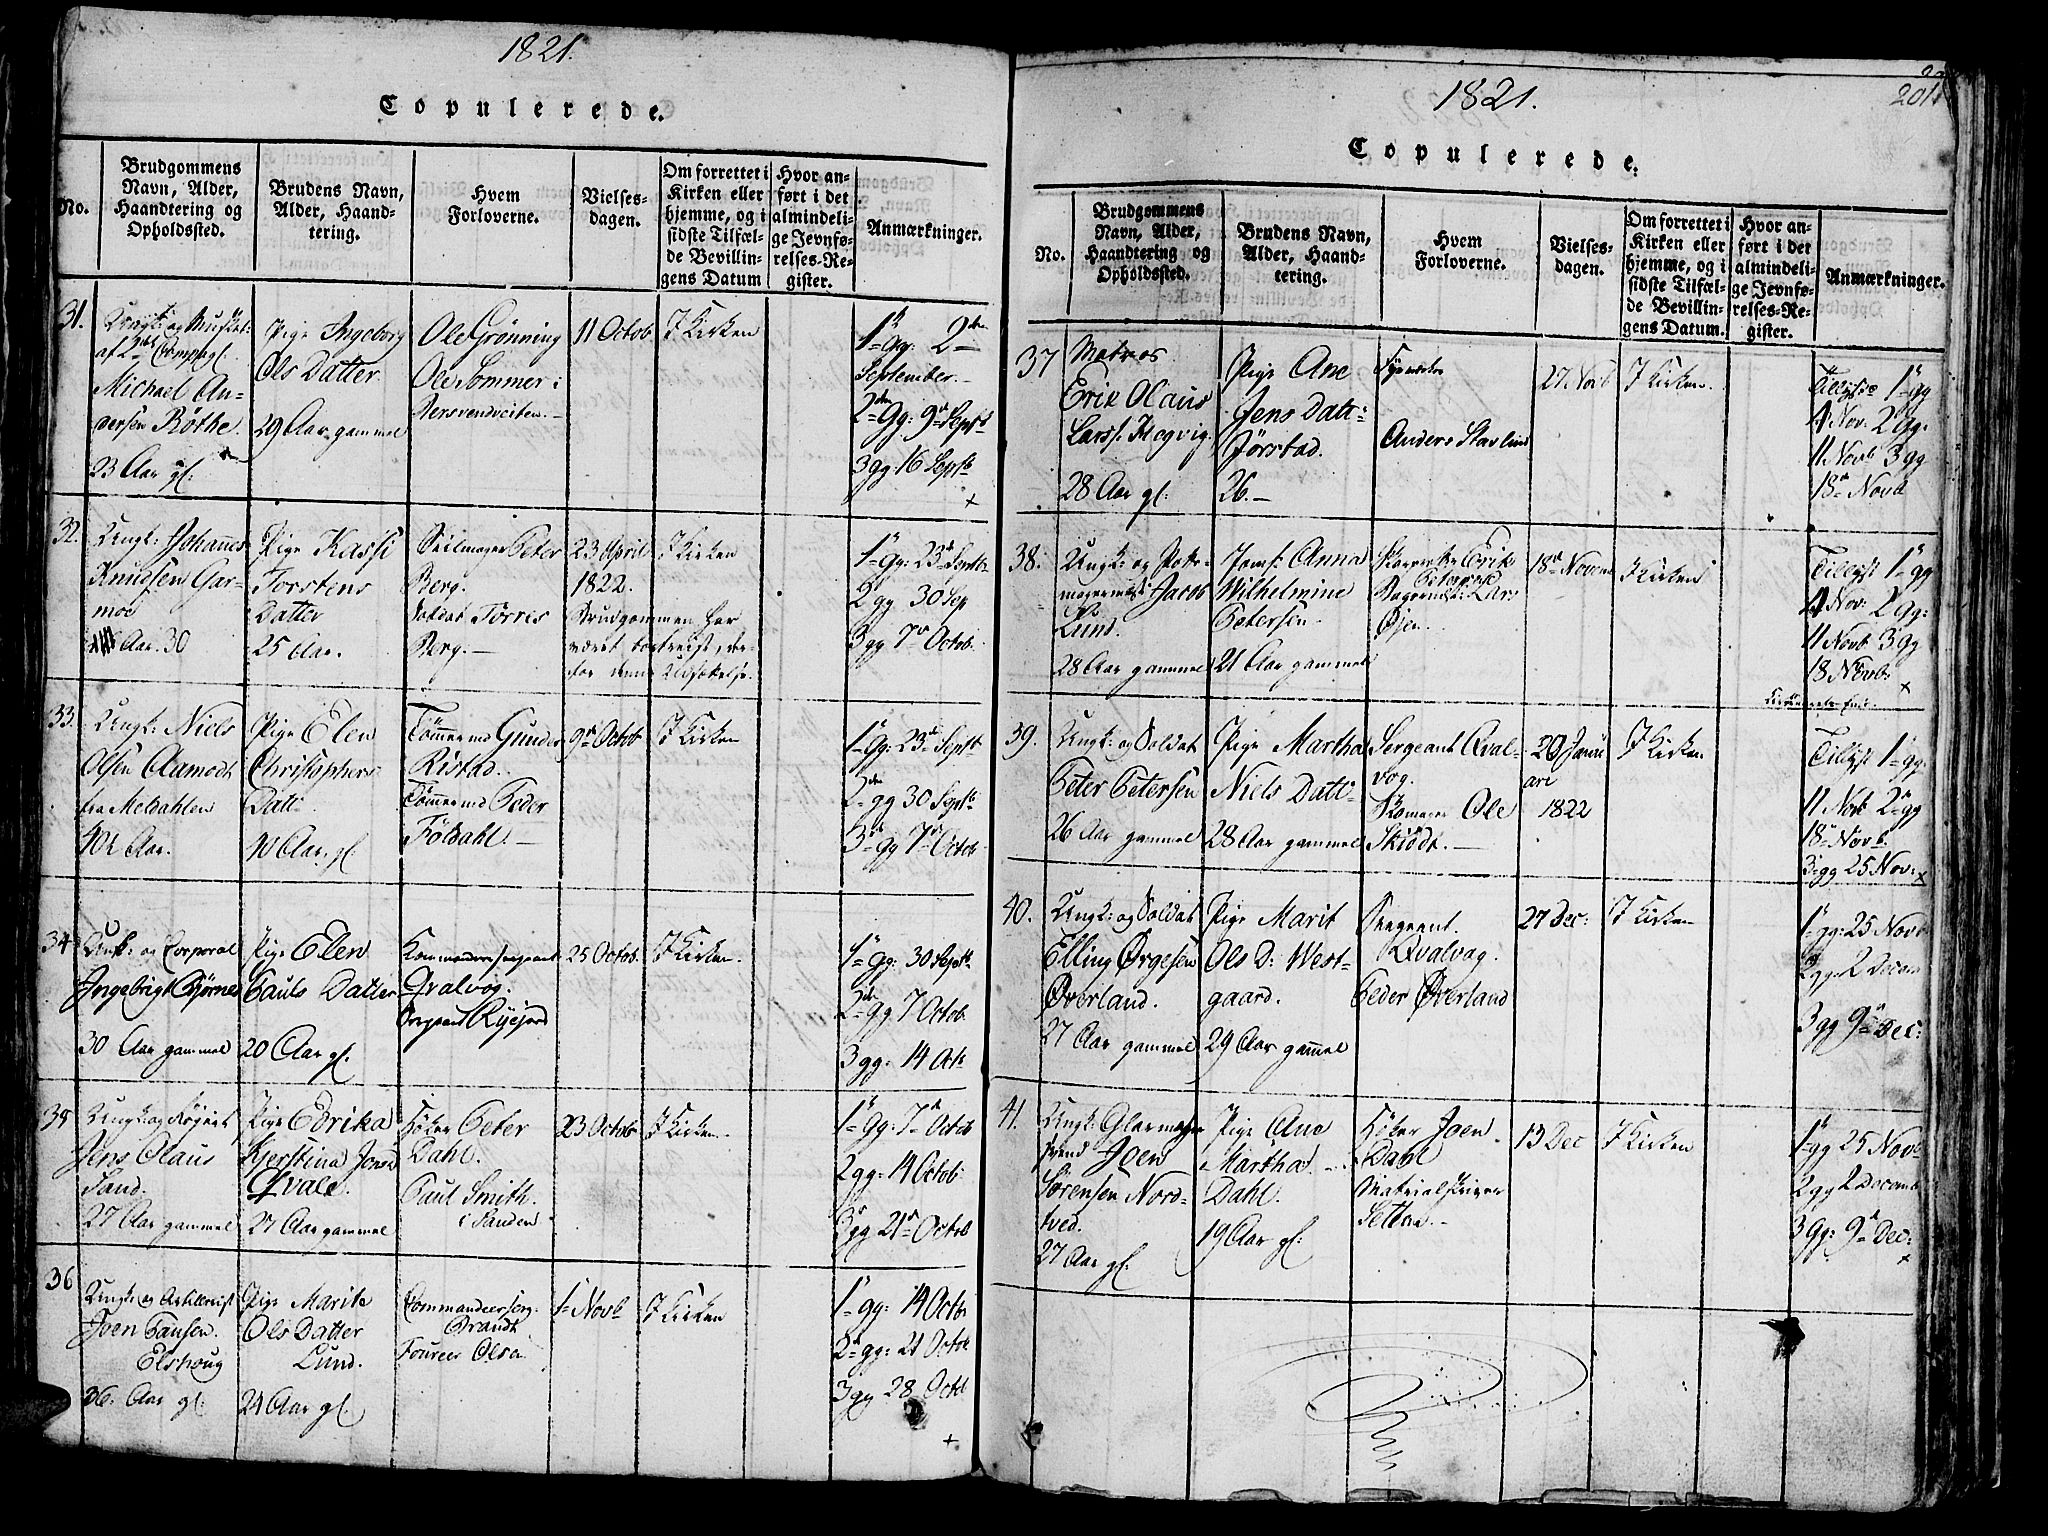 1821.
Copulerede.
No.
Brudgommens
Navn, Alder,
Haandtering og
Opholdssted.
Brudens Navn,
Alder, Haand-
tering.
Hvem
Forloverne.
Vielses-
dagen.
Om forrettet i
Kirken eller
hjemme, og i
sidste Tilfæl-
de Bevillin-
gens Datum
Hvor an-
ført i det
almindeli-
ge Jevnfø-
relses-Re-
gister.
Anmærkninger.
31.
af 2
Michael An-
dersen Röthe.
23 Aar gl.
Pige Ingeborg
Ols Datter
29 Aar gammel
Ole Grönning
Ole Sommer i
11 Octob
I Kirken
1 Gg: 2
September.
2 Gg: 9 Septb
3 gg 16 Septb
32.
Ungk: Johannes
Knudsen Gar-
moe
Aar. 30
Pige Kassi
Torstens
Datter
25 Aar.
Seilmager Peter
Berg.
Soldat Törres
Berg.
23 April
1822.
Brudgommen har
været bortreist, der-
for denne Udsættelse.
I Kirken
1 Gg: 23 Septb
2 gg 30 Sep
3 gg 7 Octob.
33.
Ungk: Niels
Olsen Aamodt
fra Meldahlen
Aar.
Pige Elen
Christophers
Datt
40 Aar. gl.
Tömmermd Gunder
Ristad.
Tömmermd Peder
Földahl.
9 Octob
I Kirken
1 Gg: 23 Septb
2 gg 30 Septb
3 gg 7 Octob
34
Ungk: og Corporal
Ingebrigt Björnes
30 Aar gammel
Pige Elen
Pauls Datter
20 Aar gl.
Qvalvog.
25 Octob.
I Kirken.
1 Gg: 30 Septb
2 gg 7 Octob
3 gg: 14 Octb
35
Jens Olaus
Sand.
27 Aar gammel
Pige Edrika
Kjerstina Jons
Qvale.
27 Aar gammel
Höker Peter
Dahl.
Paul Smith.
i Sanden
23 Octob
I Kirken.
1 Gg: 7 Octob
2 gg: 14 Octob
3 gg 21 Octob
36
Ungk: og Artillerist
Joen Hansen.
Elshoug
36. Aar gl.
Pige Marite
Ols Datter
Lund.
24 Aar gl.
Commandeerserg.
Brandt
Foureer Olsen
1 Novb
I Kirken
1 gg: 14 Octob
2 gg: 21 Octob
3 gg 28 Octob
1821.
201
Copulerede.
No.
Brudgommens
Navn, Alder,
Haandtering og
Opholdssted.
Brudens Navn,
Alder, Haand-
tering.
Hvem
Forloverne.
Vielses-
dagen.
Om forrettet i
Kirken eller
hjemme, og i
sidste Tilfæl-
de Bevillin-
gens Datum.
Hvor an-
ført i det
almindeli-
ge Jevnfø-
relses-Re-
gister.
Anmærkninger.
37
Matros
Erik Olaus
28 Aar gl:
Pige Ane
Jens Datt:
Jörstad.
26.
Anders
27 Novb
I Kirken.
Tillyst 1 gg
4 Nov: 2 Gg:
11 Novb 3 gg
18 Novb
38.
Jacob
Lund.
28 Aar gammel
Jomf: Anna
Wilhelmine
Petersen
21 Aar gammel
Erik
Lars
Öjen.
18 Novemb
I Kirken
Tillyst 1 gg
4 Nov: 2 Gg:
11 Novb 3 gg
18 Novb.
39.
Ungk: og Soldat
Peter Petersen
26 Aar gammel
Pige Martha
Niels Datt
28 Aar gammel
Sergeant Qval-
vog.
Skomager Ole
Skiödt.
Janu
ari
1822
I Kirken
Tillyst 1 gg
11 Novb 2 gg
18 Novb.
3 gg 25 Nov:
40.
Ungk: og Soldat
Elling Örgesen
Överland.
27 Aar gammel
Pige Marit
Ols D: West-
gaard.
29 Aar gammel
Sergeant.
Qvalvog.
Peder Överland
27 Dec:
I Kirken
1 gg: 25 Novb
2 gg: 2 Decem
3 gg 9 Dec:
41.
Ungk: Glarmager
svend Joen
Sörensen Nord-
tved.
27 Aar gl.
Pige Ane
Martha
Dahl.
19 Aar gl:
Höker Joen
Dahl
Materialskriver
13 Dec
I Kirken
1 gg 25 Novb
2 gg 2 Decemb
3 Gg: 9 Dec: